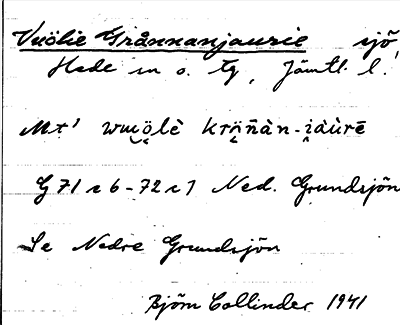 Vuölie Grånnanjaurie sjö
Hede sn o. tg, Jämtl. l.
Mt' wuo̯ölè krö̭ñàn-i̯àùrē
G 71 r 6 - 72 r 1 Ned. Grundsjön
Se Nedre Grundsjön
Björn Collinder 1941